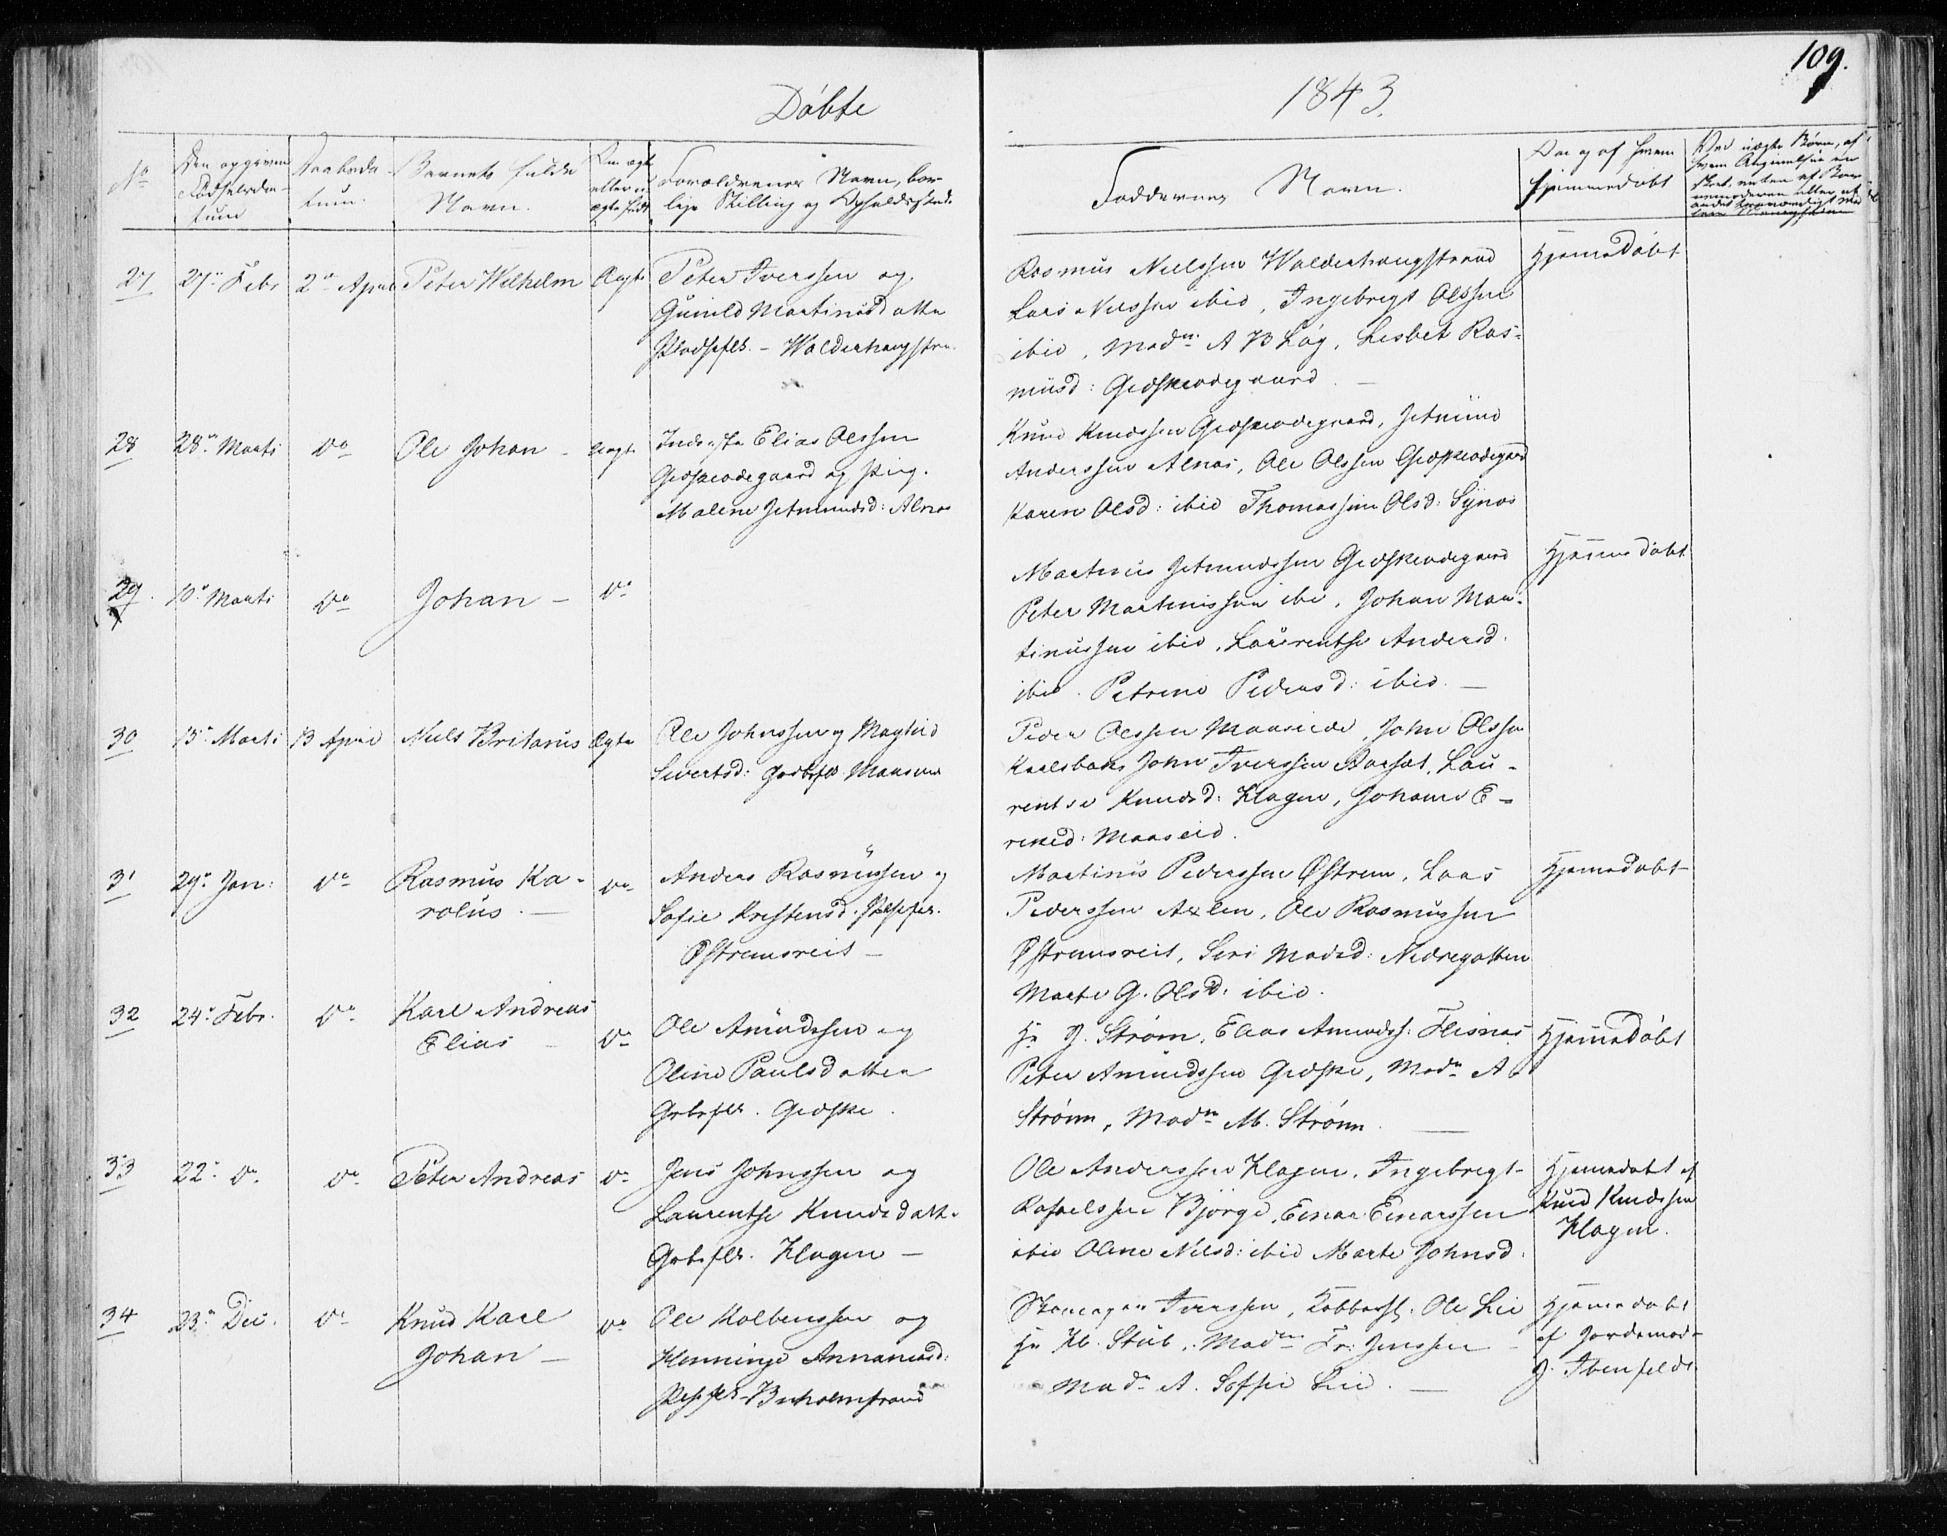 109.
Døbte
1843.
No
Den opgivne Fødselsda-
tum
Daabsda-
tum.
Barnets fulde
Navn.
Om ægte
eller u-
ægte født
Forældrenes Navn, bor-
lige Stilling og Opholdssted.
Faddernes Navn.
Om og af hvem
hjemmedøbt
27
27de Febr
2den April
Peter Wilhelm
Ægte
Peter Iverssen og
Gunild Martinusdatter
Pladsflk. - Walderhougstra.
Rasmus Nielssen Walderhougstrand
Lars Nilssen ibid, Ingebregt Olssen
ibid, Madm A B Løg, Lisbet Ras-
musd: Gidskeodegaard. -
Hjemedøbt
28
28de Marti
do
Ole Johan -
Ægte
Elias Olssen
Gidskeodegaard og Pig.
Malene Jetmundsd: Alnæs
Knud Knudssen Gidskeodegaard, Jetmund
Anderssen Alnæs, Ole Olssen Gidskeodegaard
Karen Olsd: ibid Thomassine Olsd: Synes
29.
10de Marti
do
Johan -
do
Martinus Jetmundssen Gidskeodegaard
Peter Martinussen ibi, Johan Mar-
tinussen ibid, Laurentse Andersd.
ibid. Petrine Pedersd: ibid. -
Hjemmedøbt
30
15de Marti
13 April
Niels Britanus
Ægte
Ole Johnssen og Magtild
Sivertsd: Gbrflk Maaseid
Peder Olssen Maaseide, John Olssen
Karlsbak John Iverssen Aarset, Lau-
rentse Knudsd: Klagen, Johanne E-
riksd: Maaseid.
31
29de Jan:
do
Rasmus Ka-
rolus. -
do
Anders Rasmussen og
Sofie Kristensd: Pladsflk.
Østremsreit -
Martinus Pederssen Østrem, Lars
Pederssen Axlen, Ole Rasmussen
Østremsreit, Siri Madsd: Nedregotten
Marte G. Olsd: ibid.
Hjemedøbt
32
24de Febr.
do
Karl Andreas
Elias -
do
Ole Amundssen og
Oline Paulsdatter
Gbrflk. Gidske.
Hr J. Strøm, Elias Amunds: Flisnæs
Peter Amundssen Gidske, Madm A
Strøm, Madm M. Strøm. -
Hjemedøbt
33
22de do
do
Peter Andreas
do
Jens Johnssen og
Laurentse Knudsdatt.
Gbrflk. Klagen -
Ole Anderssen Klagen, Ingebregt
Rafaelssen Bjørge, Einar Einarssen
ibid Oline Nilsd: ibid Marte Johnsd.
Hjemedøbt af
Knud Knudssen
Klagen.
34
23de Dec.
do
Knud Karl
Johan -
do
Ole Kolbenssen og
Henninge Annaniasd:
Plsflk - Buholmstrand
Skomager Iverssen, Kobbersl. Ole Lie
Hr Kl. Stub, Madm Fr: Jenssen -
Madm A. Soffie Lie. -
Hjemedøbt
af Jordemod-
J. Ibenfeldt